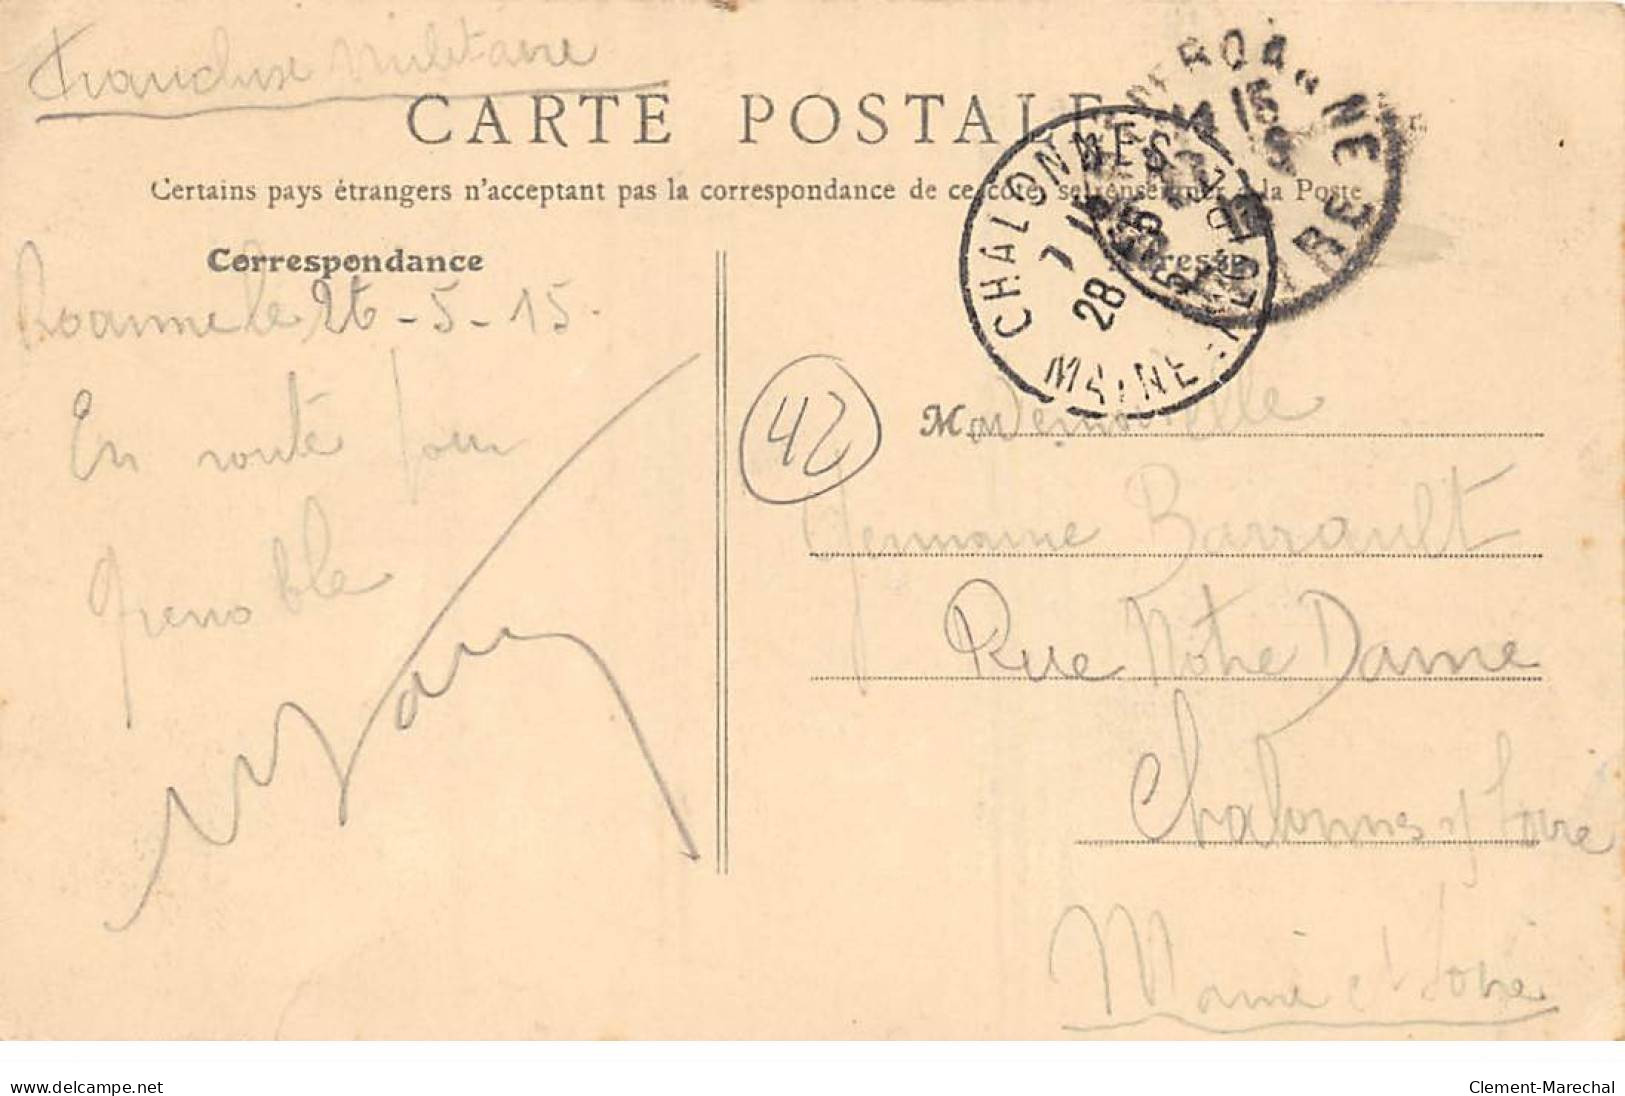 Franchise Militaire
CARTE POSTALE
Certains pays étrangers n'acceptant pas la correspondance de ce côté, se renseigner à la Poste
Correspondance
Adresse
CHALONNES
28
MAINE-ET-LOIRE
GARE DE ROANNE
Roanne le 26-5-15.
En route pour
Grenoble
42
Mademoiselle
Germaine Barrault
Rue Notre Dame
Chalonnes s/ Loire
Maine et Loire
www.delcampe.net
Clement-Marechal